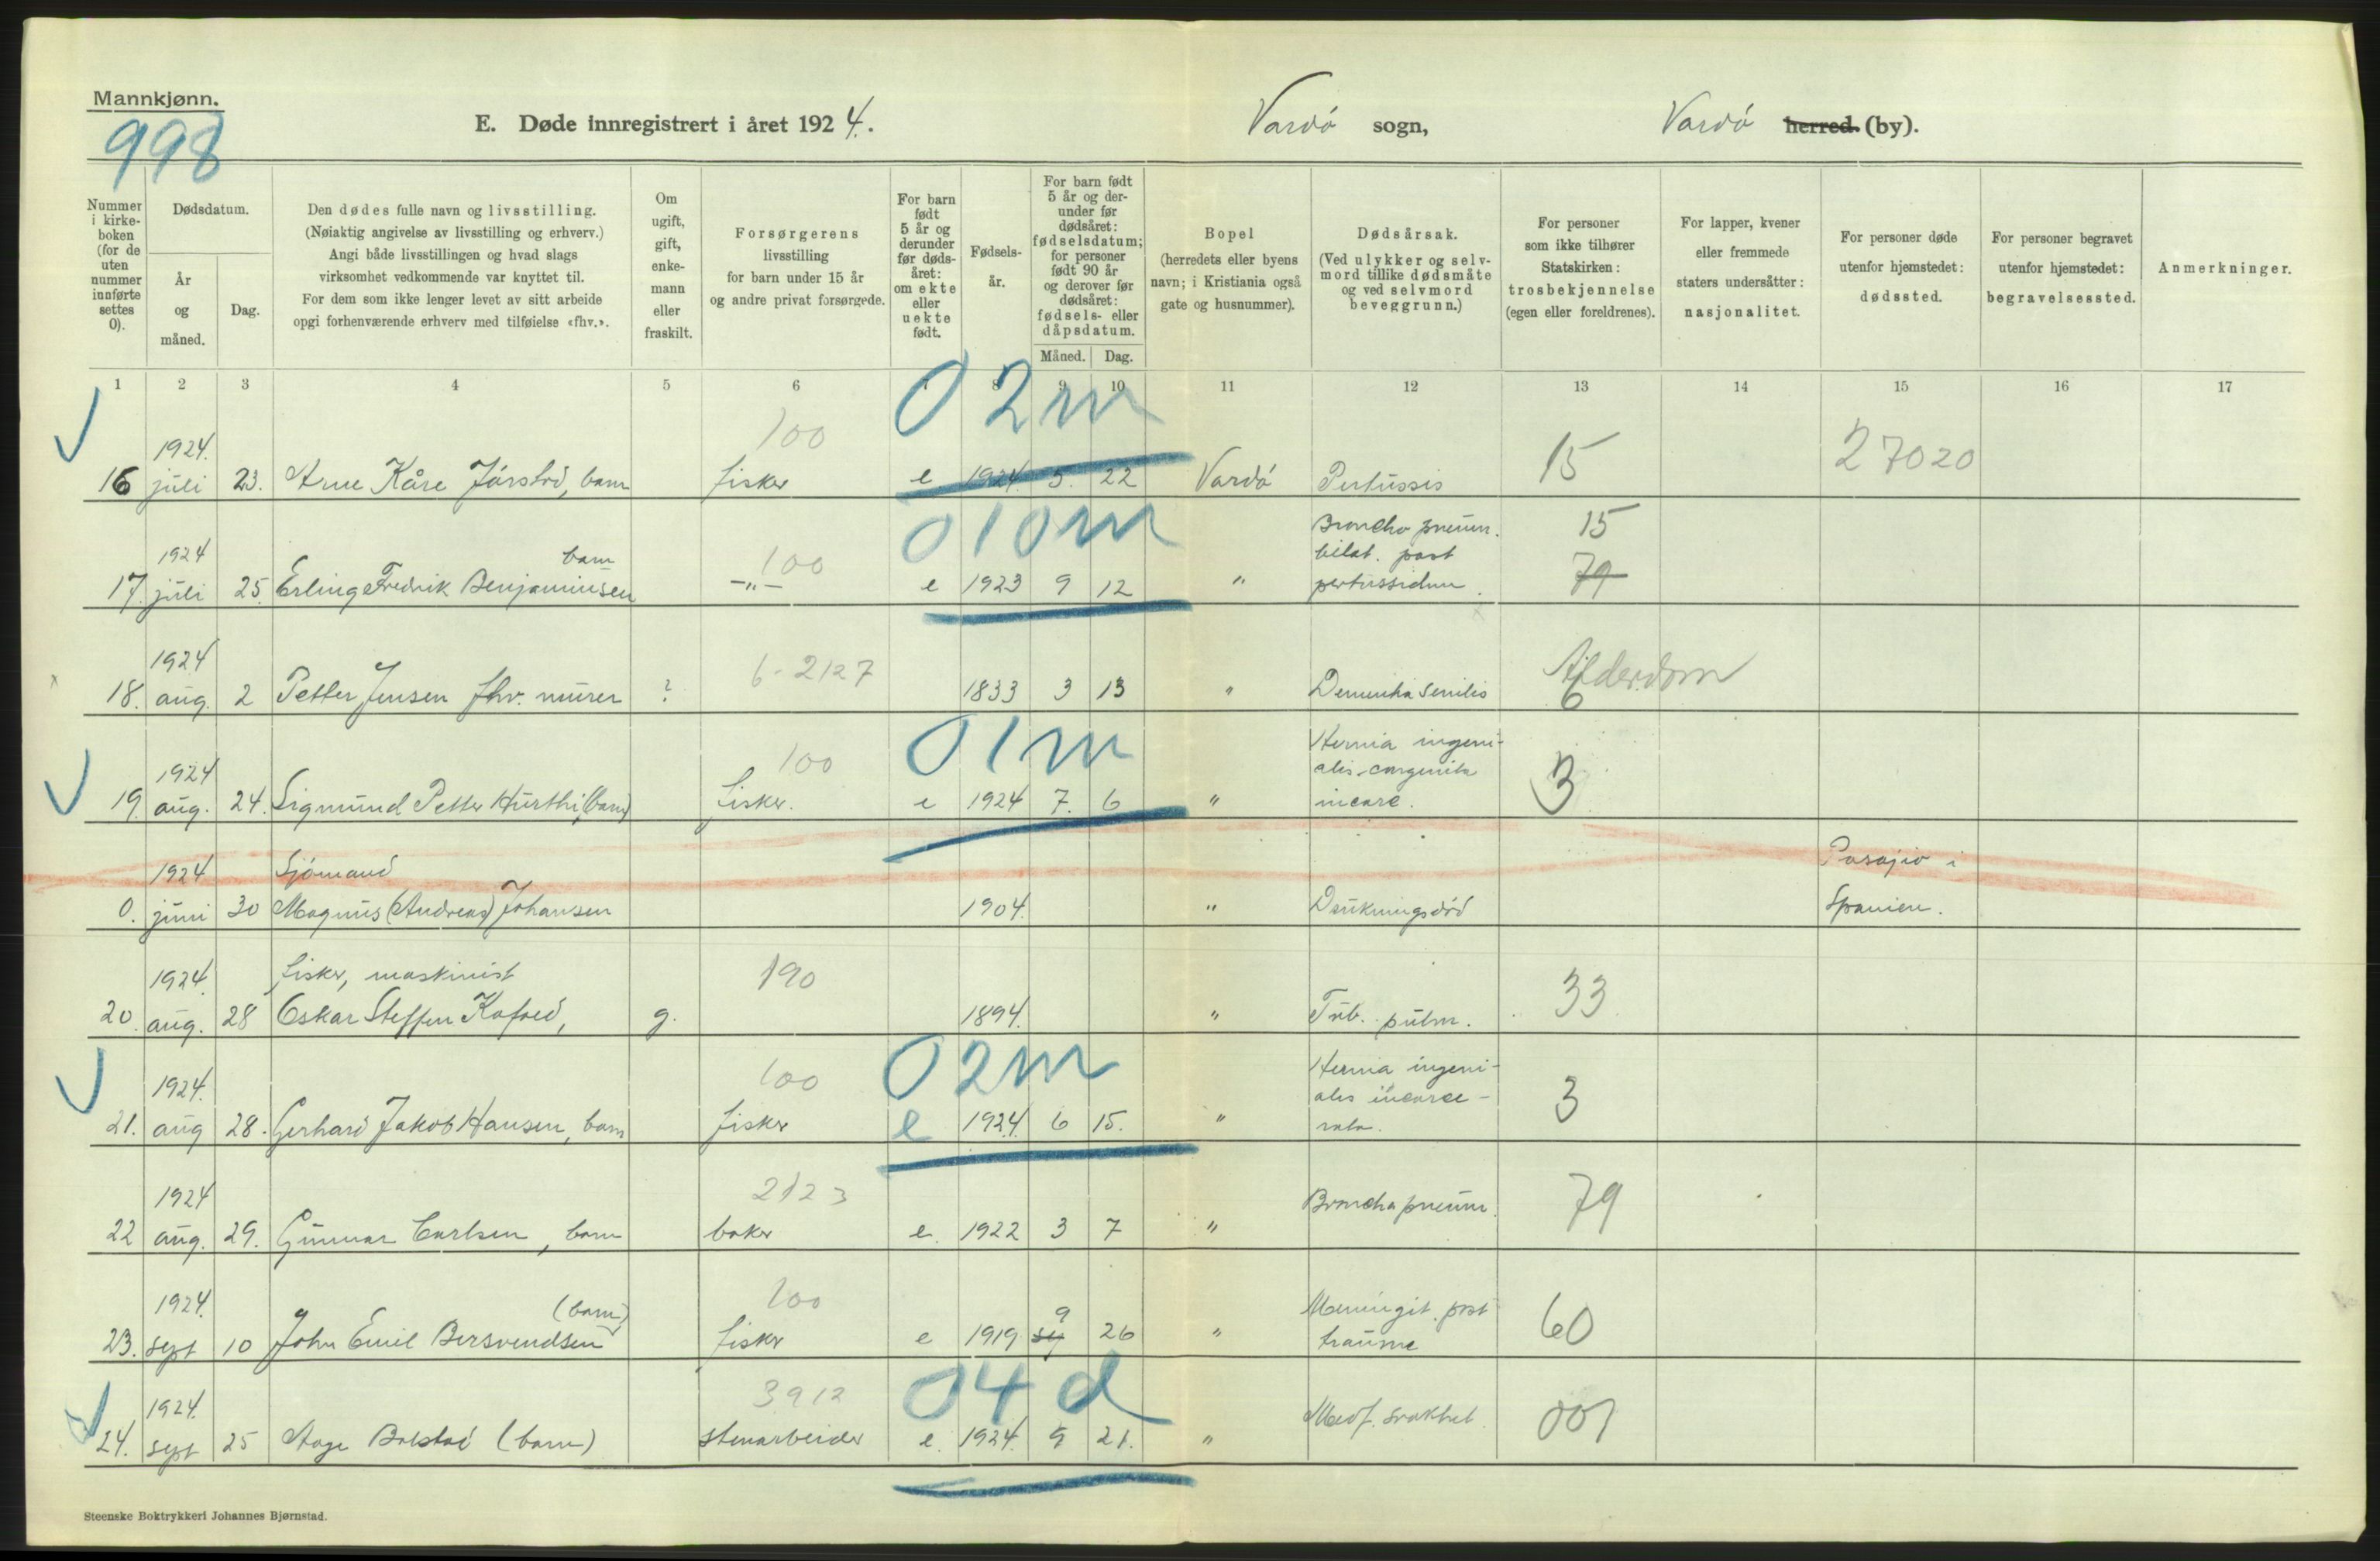 Mannkjønn.
998
E. Døde innregistrert i året 1924.
Vardö sogn,
Vardö herred (by).
Nummer i kirke-boken (for de uten nummer innførte settes 0).
Dødsdatum.
År og måned.
Dag.
Den dødes fulle navn og livsstilling.
(Nøiaktig angivelse av livsstilling og erhverv.)
Angi både livsstillingen og hvad slags
virksomhet vedkommende var knyttet til.
For dem som ikke lenger levet av sitt arbeide
opgi forhenværende erhverv med tilføielse «fhv.».
Om ugift, gift, enke-mann eller fraskilt.
Forsørgerens
livsstilling
for barn under 15 år
og andre privat forsørgede.
For barn født 5 år og derunder før døds-året: om ekte eller uekte født.
Fødsels-år.
For barn født 5 år og der-under før dødsåret: fødselsdatum; for personer født 90 år og derover før dødsåret: fødsels- eller dåpsdatum.
Måned. Dag.
Bopel
(herredets eller byens
navn; i Kristiania også
gate og husnummer).
Dødsårsak.
(Ved ulykker og selv-
mord tillike dødsmåte
og ved selvmord
beveggrunn.)
For personer
som ikke tilhører
Statskirken:
trosbekjennelse
(egen eller foreldrenes).
For lapper, kvener
eller fremmede
staters undersåtter:
nasjonalitet.
For personer døde
utenfor hjemstedet:
dødssted.
For personer begravet
utenfor hjemstedet:
begravelsessted.
Anmerkninger.
1 2 3 4 5 6 7 8 9 10 11 12 13 14 15 16 17
1924. 100 02m
16 juli 23. Arne Kåre Jörstad, barn fisker e 1924. 5. 22 Vardö Pertussis 15 27020
1924 barn 100 010m Broncho pneum. 15
bilat. post 79
17. juli 25. Erling Fredrik Benjaminsen -"- e 1923 9 12 " pertussidum.
1924 6-2127 Alderdom
18. aug. 2 Petter Jensen fhv. murer ? 1833 3 13 " Dementia senilis 6
1924 100 01m Hernia ingeni-
alis congenita
19. aug. 24. Sigmund Petter Hurthi, (barn) fisker. e 1924 7. 6 " incarc. 3
1924 Sjömand Pasajio i
0. juni 30 Magnus (Andreas) Johansen 1904. " Drukningsdöd Spanien.
1924. fisker, maskinist 190
20. aug. 28 Oskar Steffen Kofoed, g. 1894. " Tub. pulm. 33
1924. 100 02m Hernia ingeni-
alis incarce-
21. aug 28. Gerhard Jakob Hansen, barn fisker e 1924. 6 15. " rata. 3
1924 2123
22 aug. 29. Gunnar Carlsen, barn baker e. 1922 3 7 " Bronchopneum. 79
1924. (barn) 100 9 Meningit. post
23. sept 10 John Emil Bersvendsen fisker e 1919 26 " traume 60
1924. 3912 04d
24. sept 25 Aage Bolstad (barn) stenarbeider e. 1924. 9 21. " Medf. svakhet. 001
Steenske Boktrykkeri Johannes Bjørnstad.